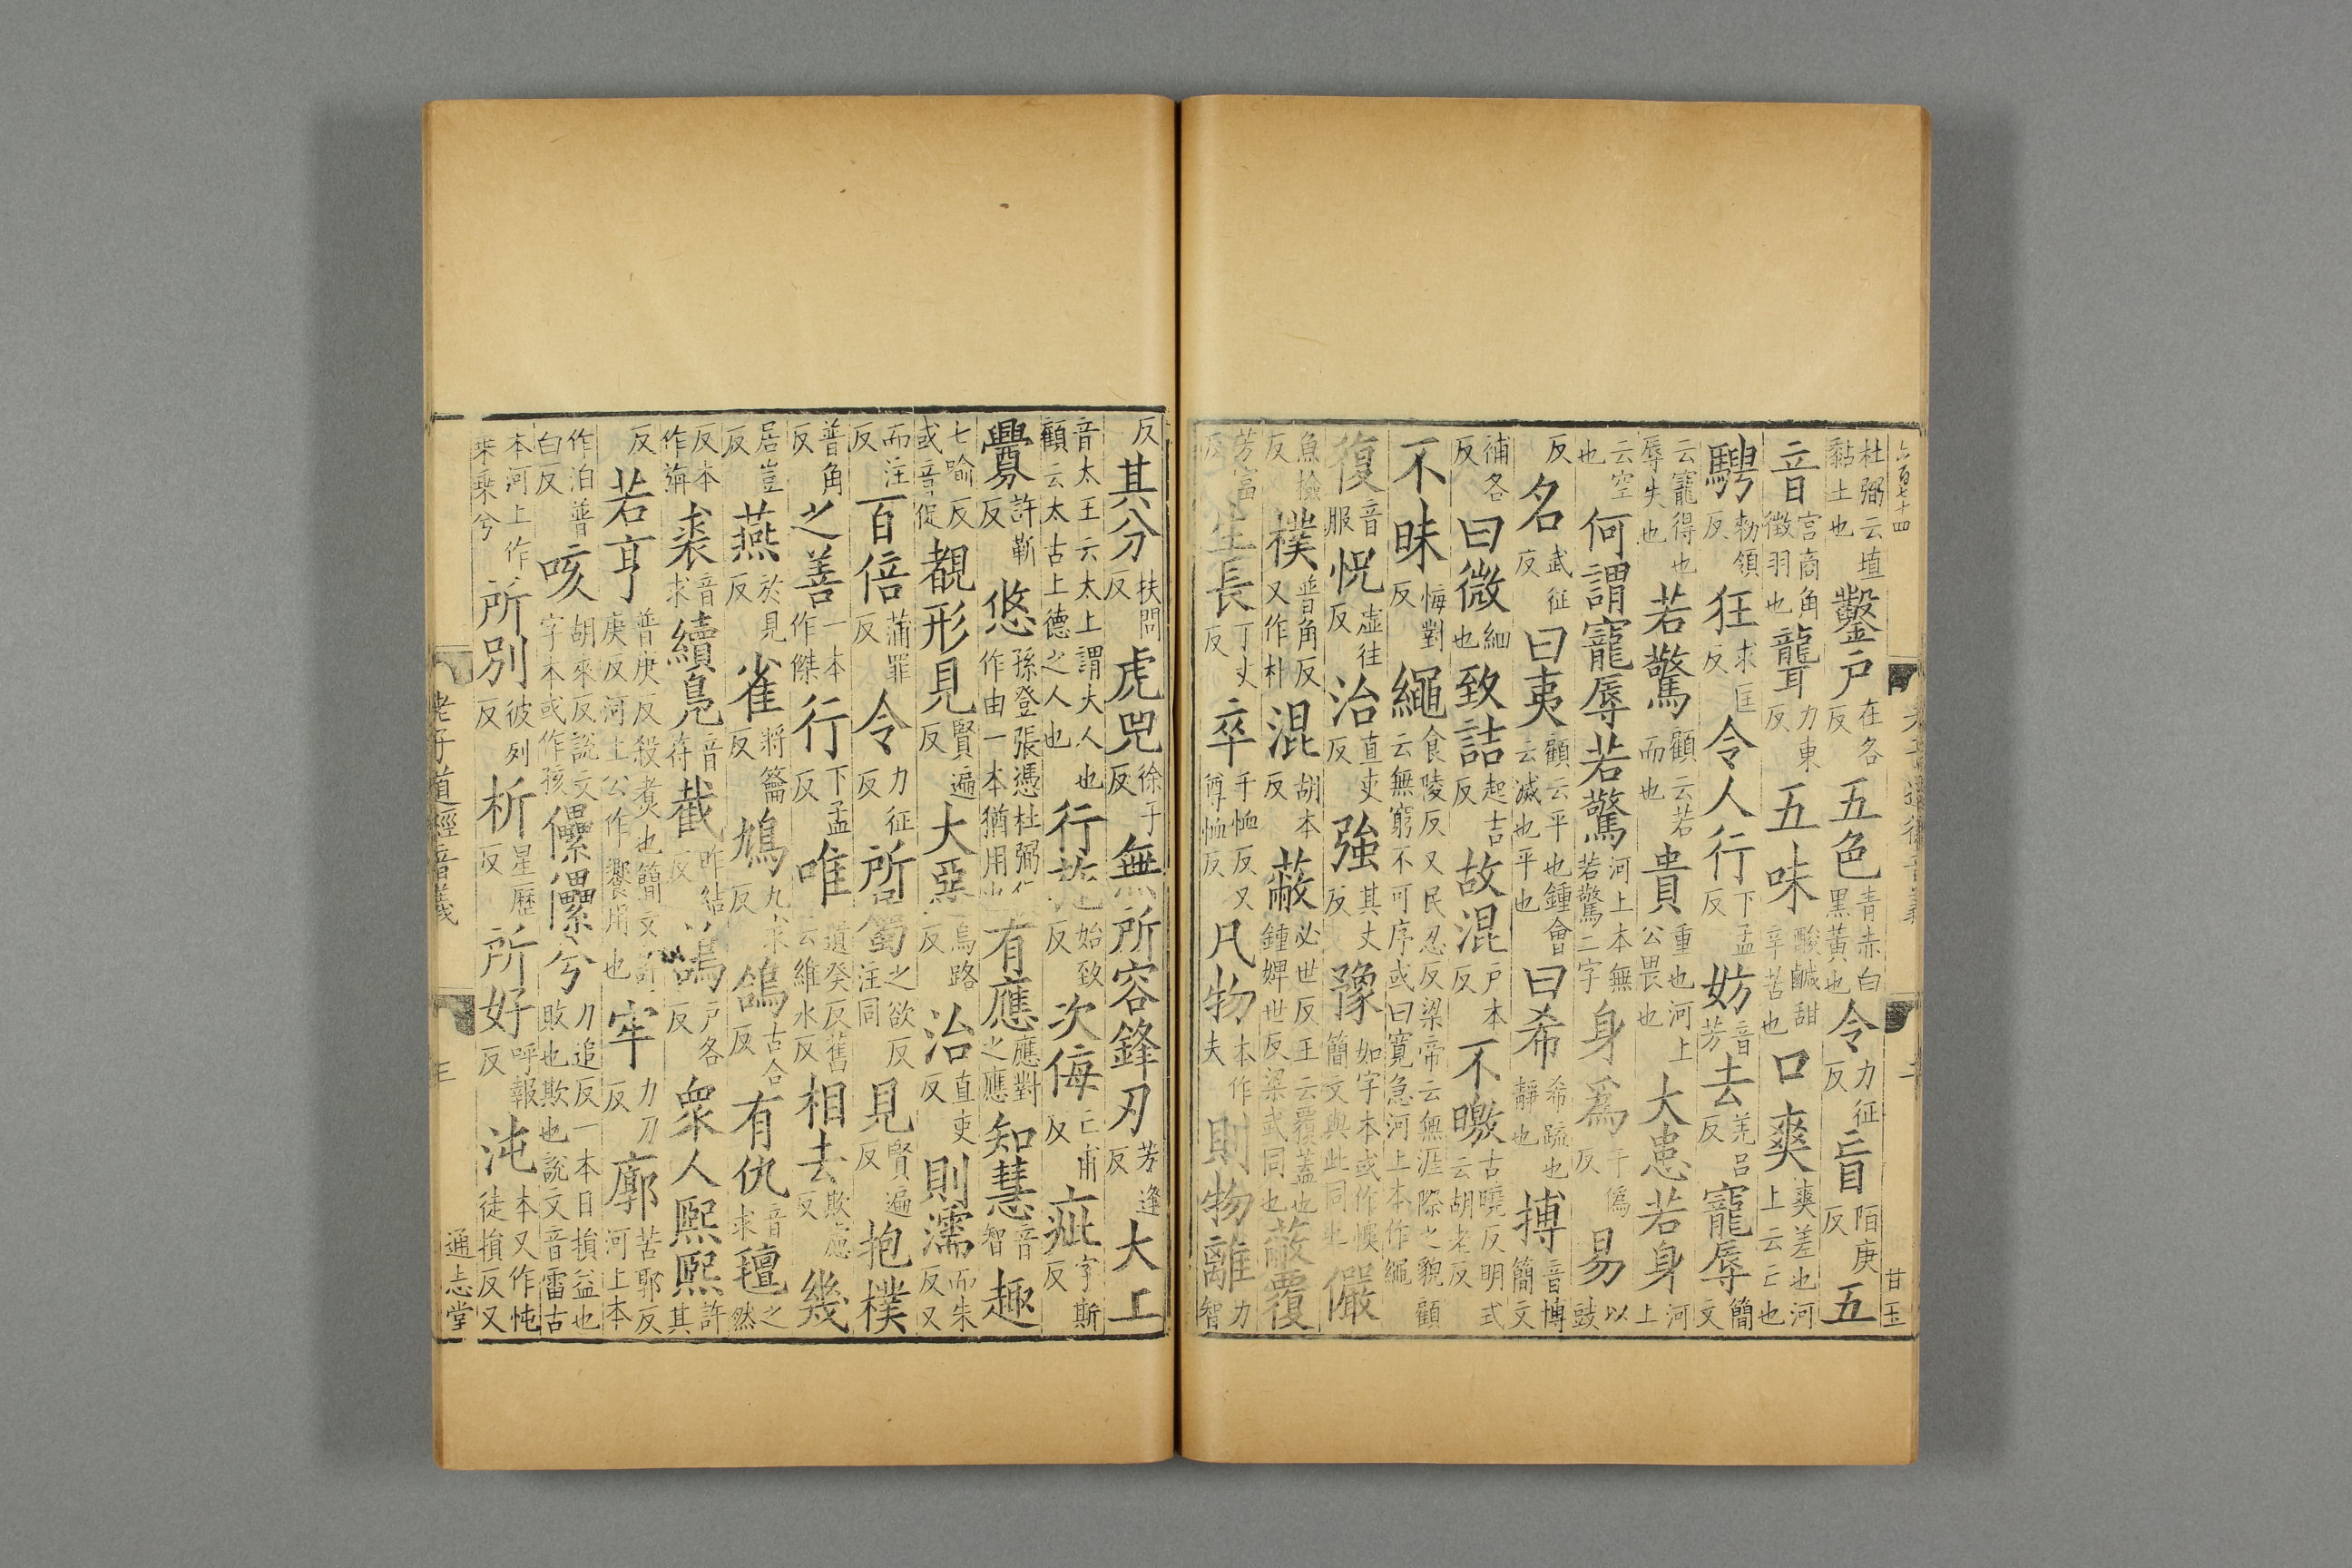 六百七十四
杜弼云埴黏土也鑿户在各反五色青赤白黑黃也令力征反盲陌庚反五
音宮商角徵羽也聾力東反五味酸鹹甜辛苦也口爽爽差也河上云亡也
騁勑領反狂求匡反令人行下孟反妨音芳去羌呂反寵辱簡文
云寵得也辱失也若驚顧云若而也貴重也河上公畏也大患若身河上
云空也何謂寵辱若驚河上本無若驚二字身爲于僞反易以豉
反名武征反曰夷顧云平也鍾會云滅也平也曰希希疏也靜也搏音博簡文
補各反曰微細也致詰起吉反故混户本反不皦古曉反明式云胡老反
不昧梅對反繩食陵反又民忍反梁帝云無涯際之貌顧云無窮不可序或曰寬急河上本作繩
復音服怳虛往反治直吏反強其丈反豫如字本或作懊簡文與此同也儼
魚檢反樸普角反又作朴混胡本反蔽必世反王云覆蓋也鍾婢世反梁武同也蔽覆
芳富反生長丁丈反卒千恤反又尊恤反凡物本作夫則物離力智
甘玉
反其分扶問反虎兕徐子反無所容鋒刃芳逢反大上
音太王云太上謂大人也顧云太古上德之人也行施始致反次侮亡甫反疵字斯反
釁許靳反悠孫登張憑杜弼作由一本猶用也有應應對之應知慧音智趣
七喻反或音促覩形見賢遍反大惡烏路反治直吏反則濡而朱反又
而注反百倍蒲罪反令力征反所屬之欲反注同見賢遍反抱樸
普角反之善一本作傑行下孟反唯遺癸反舊云維水反相去欺慮反幾
居豈反燕於見反雀將籥反鴆九求反鴿古合反有仇音求氈之然
反本作旃裘音求續鳧音符截昨結反鶴户各反衆人熙熙許其
反若亨普庚反殺煮也簡文許庚反河上公作饗用也牢力刀反廓苦郭反河上本
作泊普白反咳胡來反說文字本或作孩儽儽兮力追反一本曰損益也敗也欺也說文音雷古
本河上作乘乘兮所別彼列反析星歷反所好呼報反沌本又作忳徒損反又
老子道經音義
三
通志堂